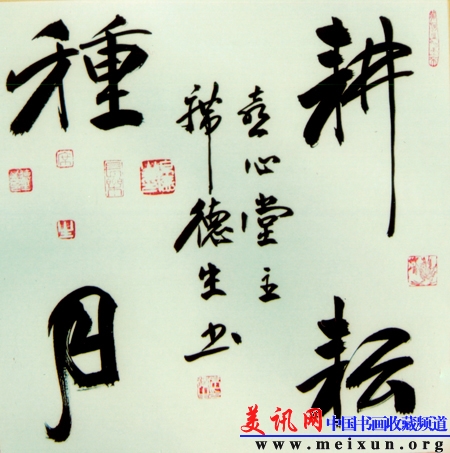 耕耘
心堂主
德生书
種月
美讯网
中国书画收藏频道
www.meixun.org